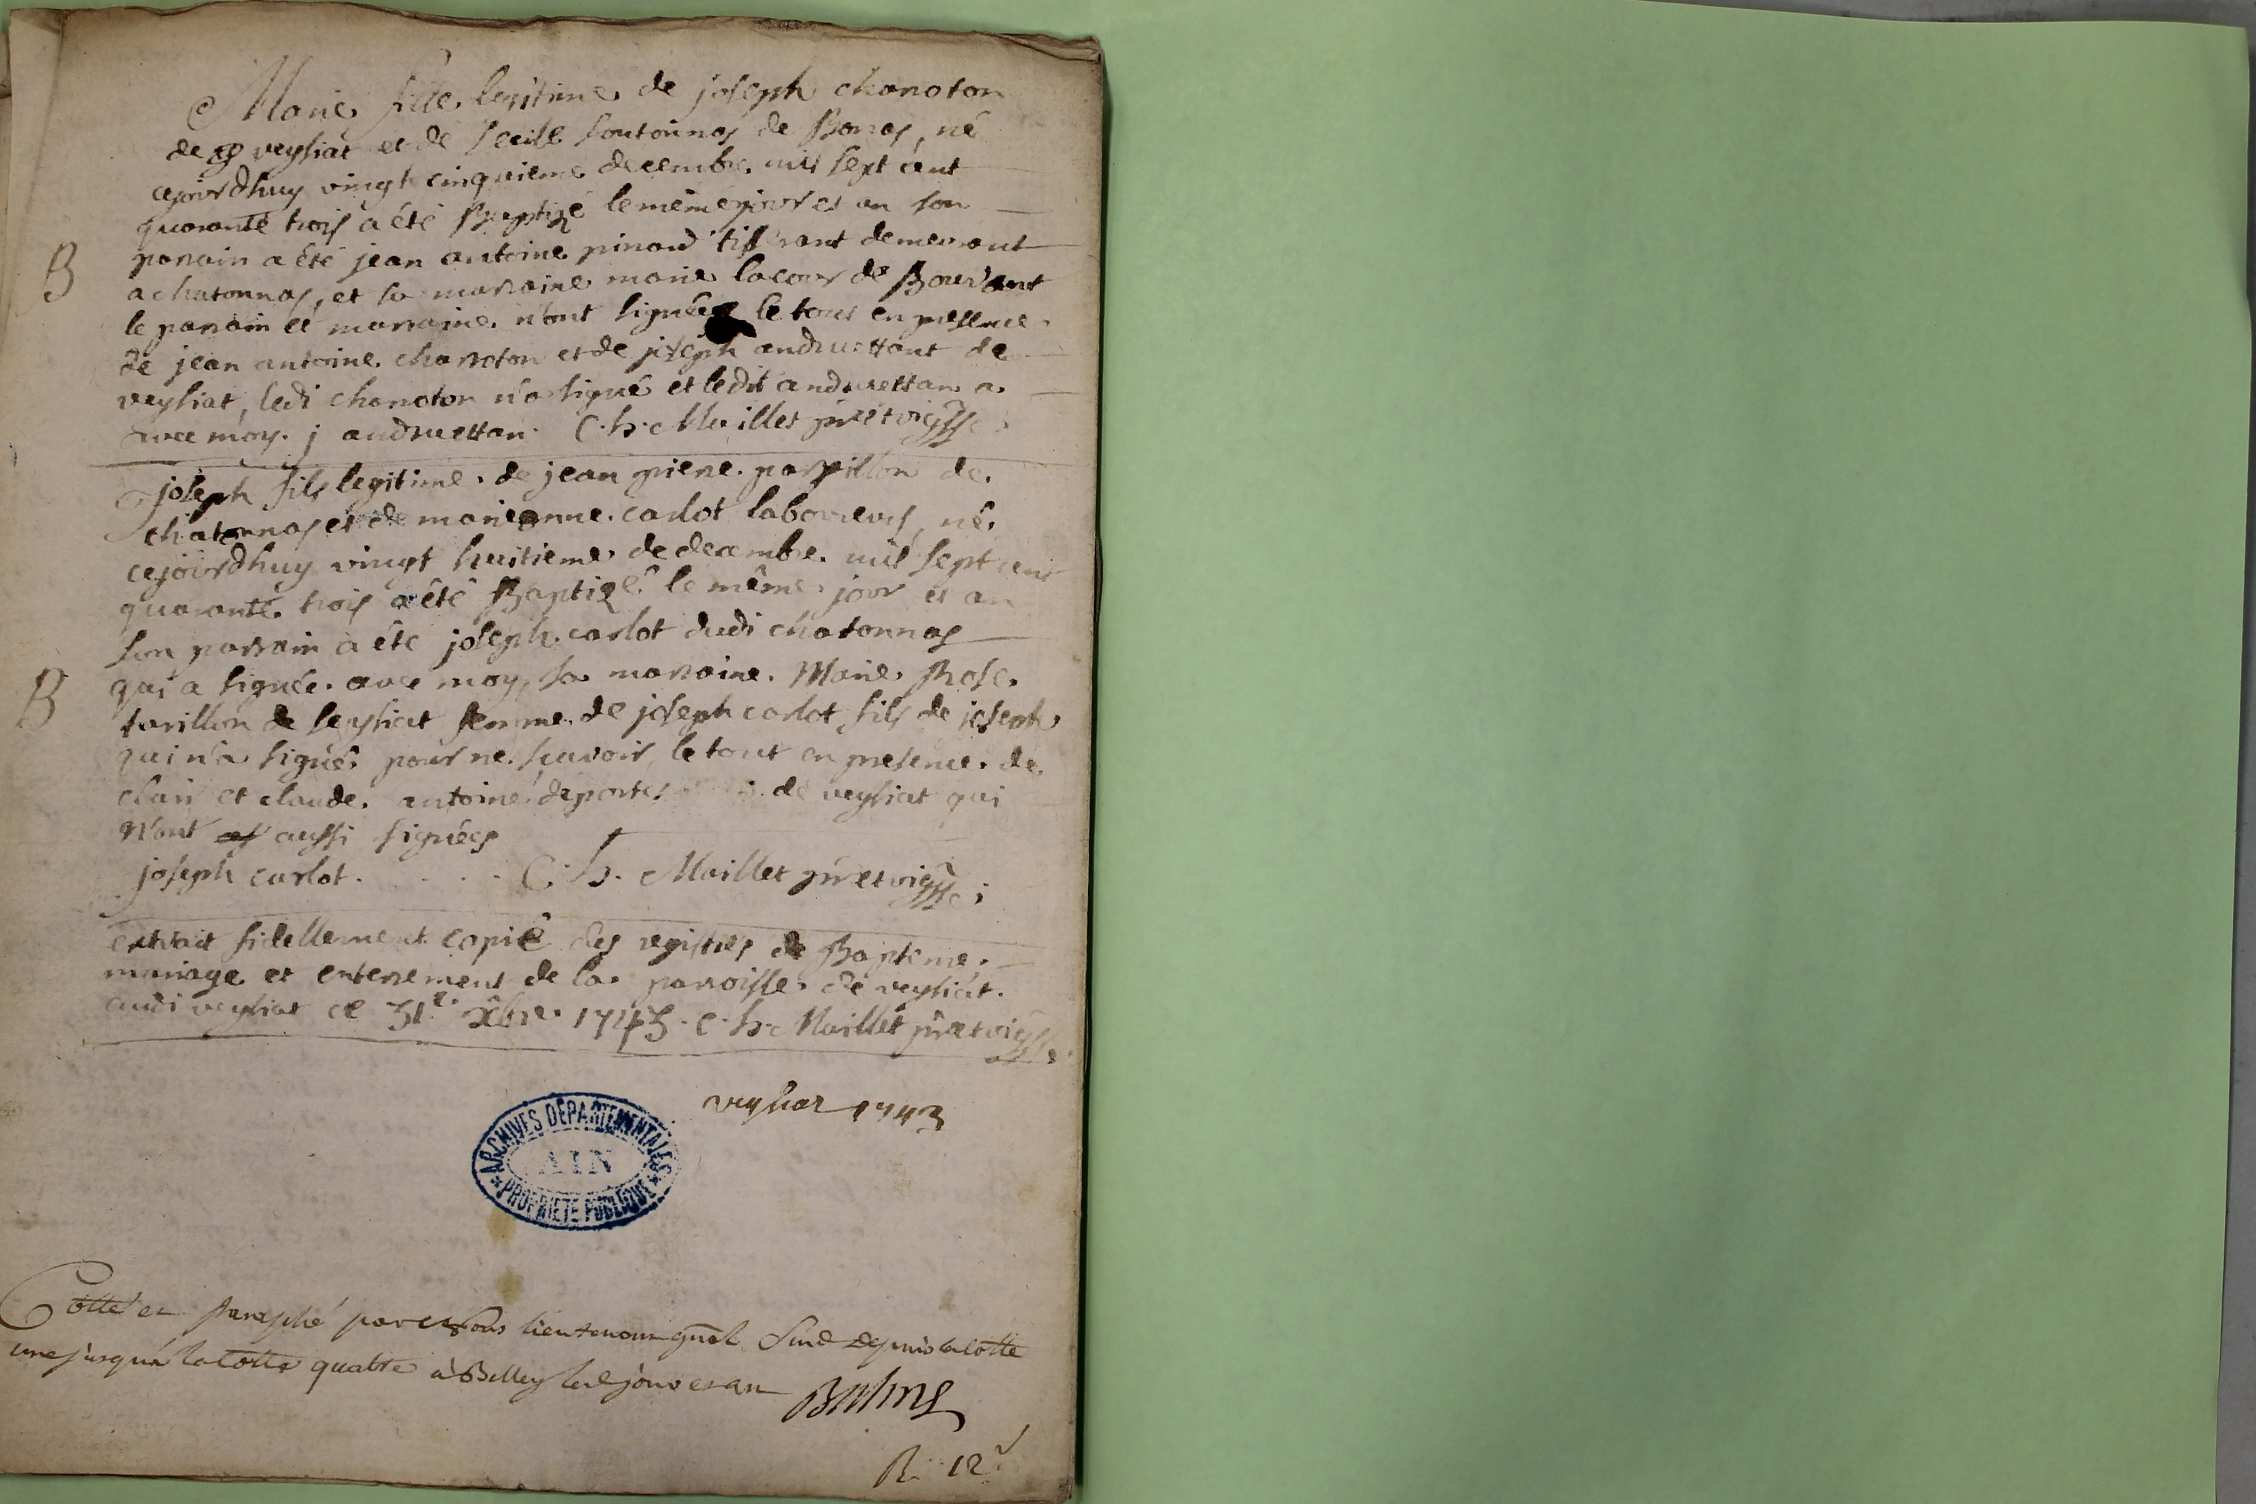 Marie fille legitime de joseph charroton
de veysiat et de secile soutonnas de Bonas, né
cejourdhuy vingt cinquieme decembre mil sept cent
quarante trois a été Baptizé le même jour et an son
B parrain a été jean antoine pinard tisserant demeurant
a chatonnas, et sa marraine marie lacour de Bouvant
le parrain et marraine n'ont signées le tout en presence
de jean antoine charroton et de joseph andruettant de
veysiat, ledi charroton n'a signé et ledit andruettan a
avec moy. j andruettan. C. h. Maillet
joseph fils legitime de jean pierre parpillon de
chatonnas et de marieanne carlot laboureurs, né
cejourdhuy vingt huitieme de decembre mil sept cent
quarante trois a été Baptizé le même jour et an
son parrain a été joseph carlot dudi chatonnas
B qui a signée avec moy, sa marraine Marie Rose
tarillon de seysiat femme de joseph carlot fils de joseph
qui n'a signée pour ne savoir, le tout en presence de
clair et claude antoine deportes de veysiat qui
n'ont aussi signées
joseph carlot. C. h. Maillet
extrait fidellement copié des registres de Bapteme
mariage et enterrement de la parroisse de veysiat.
audi veysiat ce 31e. Xbre 1743. C. h. Maillet
veysiat 1743
ARCHIVES DÉPARTEMENTALES
AIN
PROPRIÉTÉ PUBLIQUE
Cotté et paraphé par Nous lieutenant gnal Sud depuis la cotte
une jusqu'a la Cotte quatre à Belley led jour et an
R. 12